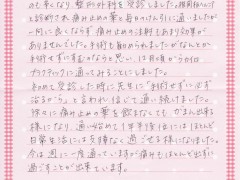 のも辛くなり、整形外科を受診しました。椎間板ヘルニア
と診断され痛み止めの薬と毎日のけん引に通いましたが
一向に良くならず、痛み止めの注射もあまり効果が
ありませんでした。手術も勧められましたがなんとか
手術せずに すむ ならと思い、12月頃からカイロ
プラクティックに通ってみることにしました。
初めて受診した時に先生に「手術せずに必ず
治るから」と言われ信じて通い続けました。
徐々に痛み止めの薬を飲まなくても がまん出来る
様になり、通い始めて1年半経った今ではほとんど
日常生活には支障なく過ごせる様になりました。
今は週に一度通っていますが痛みもほとんど出ずに
過ごすことが出来ています。